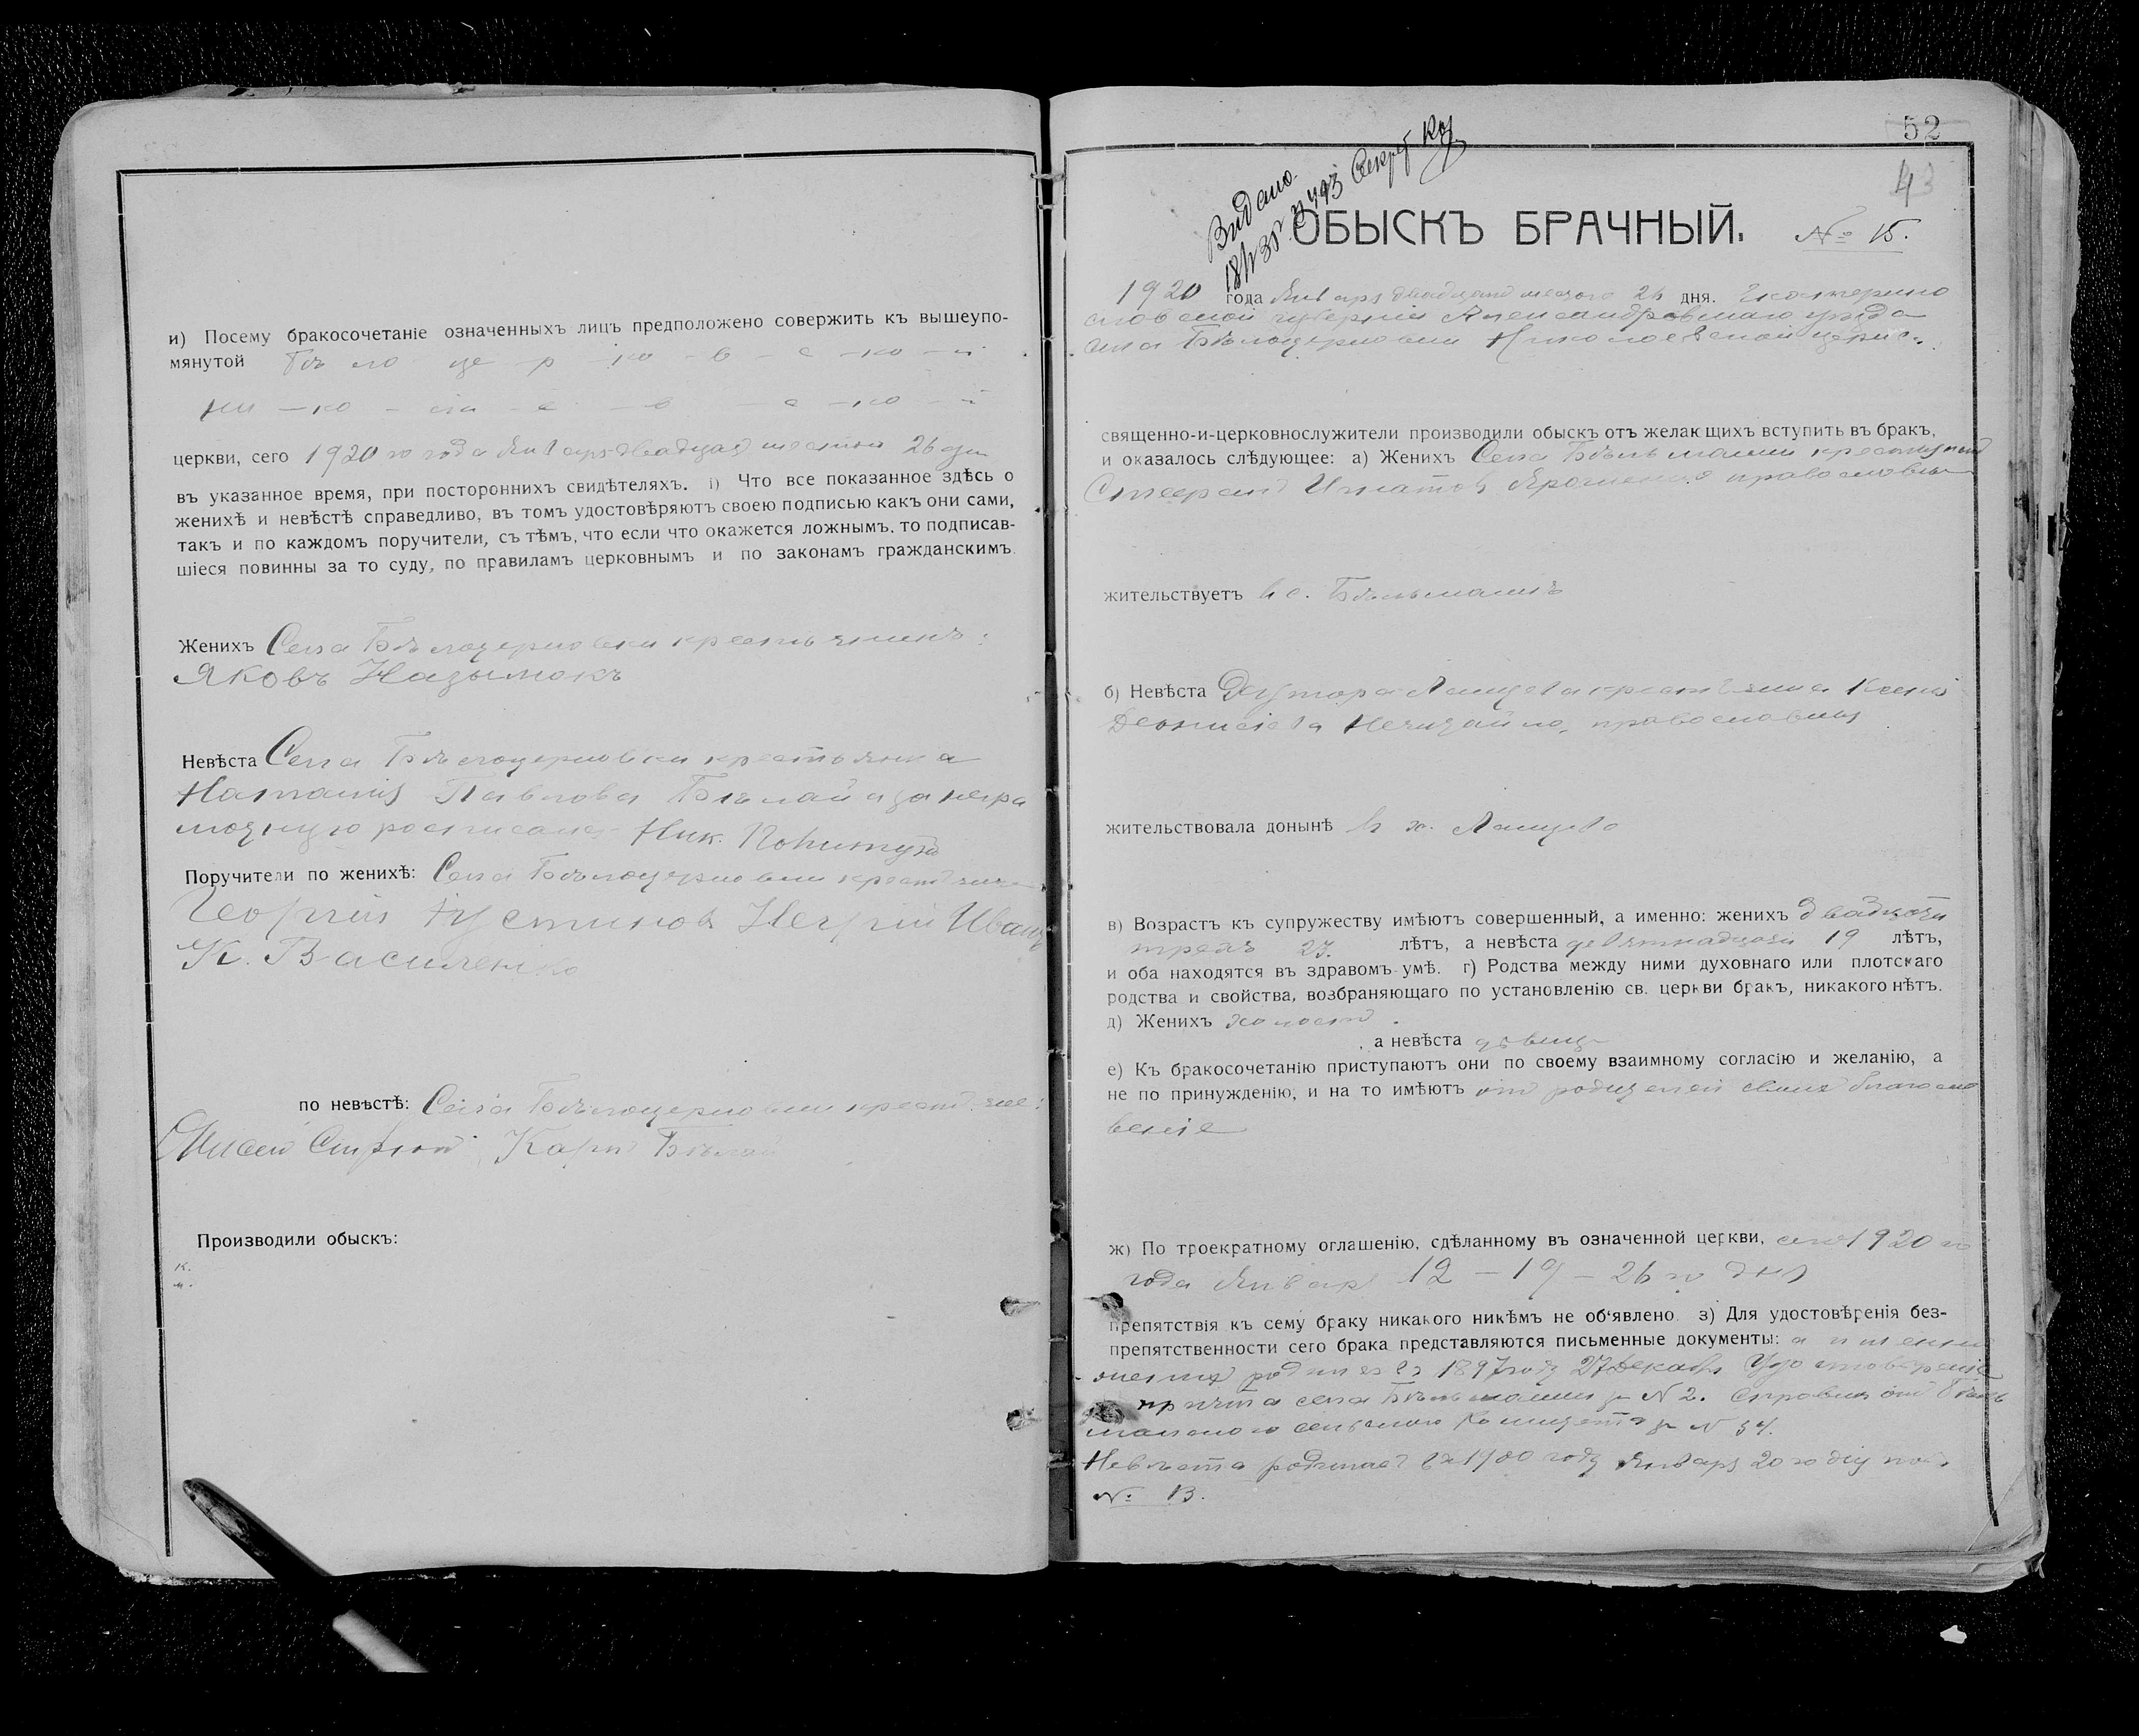 и) Посему бракосочетаніе означенныхъ лицъ предположено совержить къ вышеупо-
мянутой Бѣ ло це - р - ко - в - с - ко - й
Ни - ко - ла - е - в - с - ко - й
церкви, сего 1920 го года Января двадцать шестого 26 дня
въ указанное время, при постороннихъ свидѣтеляхъ. і) Что все показанное здѣсь о
женихѣ и невѣстѣ справедливо, въ томъ удостовѣряютъ своею подписью какъ они сами,
такъ и по каждомъ поручители, съ тѣмъ, что если что окажется ложнымъ, то подписав-
шіеся повинны за то суду, по правиламъ церковнымъ и по законамъ гражданскимъ.
Женихъ Села Бѣлоцерковки крестьянинъ:
Яковъ Назымокъ
Невѣста Села Бѣлоцерковки крестьянка
Наталія Павлова Бѣлай а за негра
мотную росписался Ник.
Поручители по женихѣ: Села Бѣлоцерковки крестьяне
Георгій Іустиновъ Иван
К. Василенко
по невѣстѣ: Села Бѣлоцерковки крестьяне:
Карпъ Бѣлай
Производили обыскъ:
52
43
Видано
Секрет
ОБЫСКЪ БРАЧНЫЙ. № 15.
1920 года Января двадцать шестого 26 дня. Екатерино
славской губерніи Александровскаго уѣзда
села Бѣлоцерковки Николаевской церкви
священно-и-церковнослужители производили обыскъ отъ желающихъ вступить въ бракъ,
и оказалось слѣдующее: а) Женихъ Села Бѣльманки крестьянинъ
Игнатовъ православный
жительствуетъ въ с. Бѣльманкѣ
б) Невѣста Хутора крестьянка Ксенія
Деонисіева Нечитайло, православная
жительствовала донынѣ въ х.
в) Возрастъ къ супружеству имѣютъ совершенный, а именно: женихъ двадцати
трехъ 23. лѣтъ, а невѣста девятнадцати 19 лѣтъ,
и оба находятся въ здравомъ умѣ. г) Родства между ними духовнаго или плотскаго
родства и свойства, возбраняющаго по установленію св. церкви бракъ, никакого нѣтъ.
д) Женихъ холостъ
, а невѣста дѣвица
е) Къ бракосочетанію приступаютъ они по своему взаимному согласію и желанію, а
не по принужденію, и на то имѣютъ отъ родителей своихъ благосло
веніе
ж) По троекратному оглашенію, сдѣланному въ означенной церкви, сего 1920 го
года Января 12 - 19 - 26 го дня
препятствія къ сему браку никакого никѣмъ не об'явлено. з) Для удостовѣренія без-
препятственности сего брака представляются письменные документы: а
женихъ родился въ 1897 году 27 Декабря Удостовѣреніе
причта села Бѣльманки за N 2. Справка отъ Бѣль
манскаго сельскаго Комитета за N 34.
Невѣста родилась въ 1900 году Января 20 го дня под
№ 13.